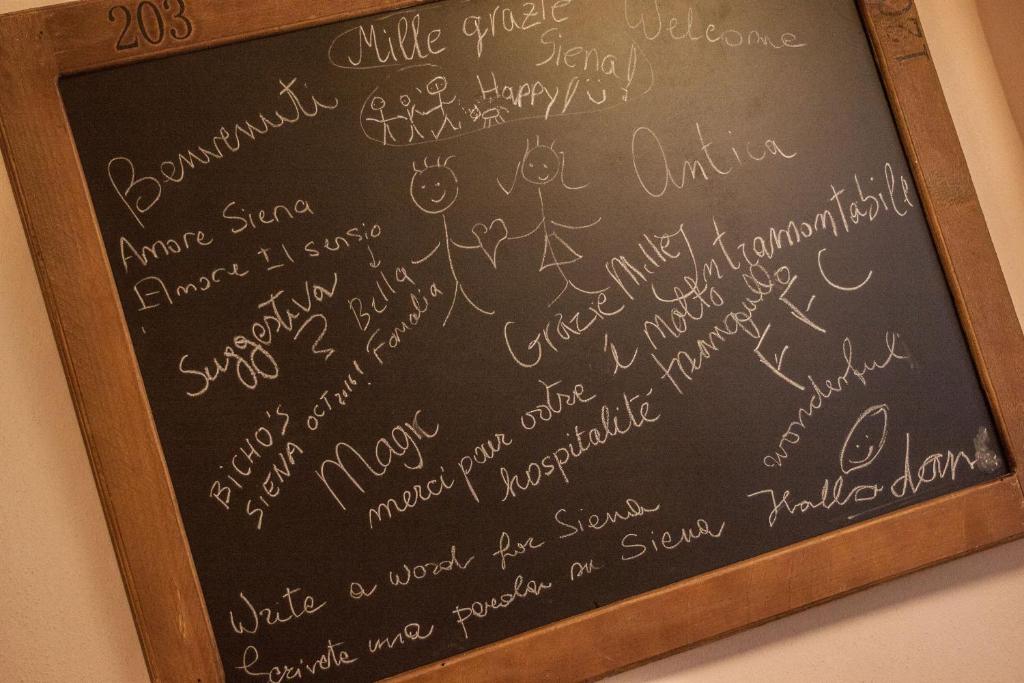 203
120
Mille grazie
Siena!
Welcome
Happy!
Benvenuti
Antica
Amore Siena
Amore Il sensio
Bella
Suggestiva
Intramontabile
Grazie Mille!
é molto
tranquillo
F F C
BICHO'S
SIENA OCT 2016! Familia
Magic
merci pour votre
hospitalité
wonderful
Hallo
Write a word for Siena
Scrivete una parola su Siena